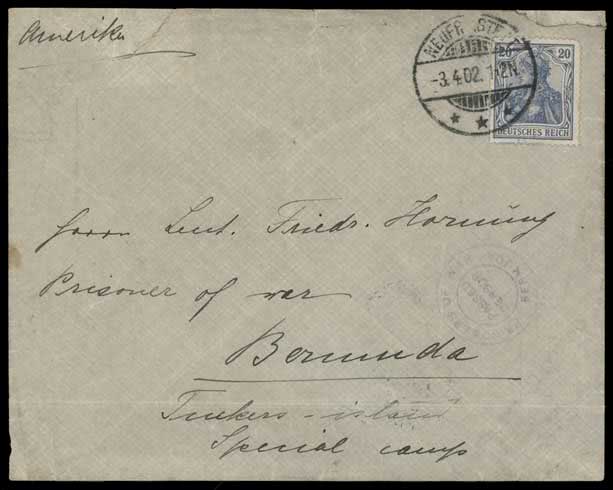 Amerika
-3.4.02.
20 20
DEUTSCHES REICH
Herrn Leut. Friedr. Hornung
Prisoner of war
Bermuda
Tuckers-island
Special camp